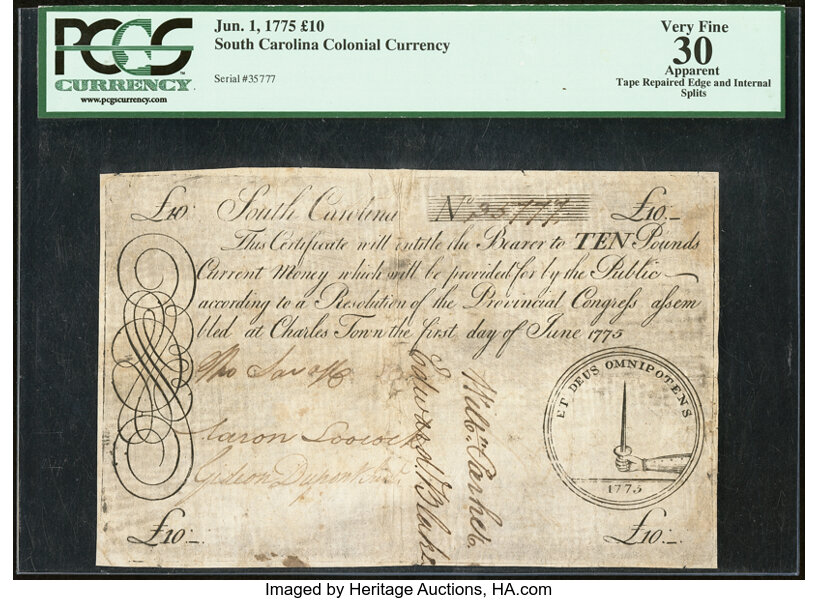 PCGS
CURRENCY
www.pcgscurrency.com
Jun. 1, 1775 £10
South Carolina Colonial Currency
Serial #35777
Very Fine
30
Apparent
Tape Repaired Edge and Internal
Splits
£10: South Carolina No. 35777 £10:-
This Certificate will entitle the Bearer to TEN Pounds
Current Money which will be provided for by the Public
according to a Resolution of the Provincial Congreſs aſsem
bled at Charles Town the first day of June 1775
Tho Savage
Aaron Loocock
Gideon Dupont
Edward Blake
Will^m. Parker.
ET DEUS OMNIPOTENS
1775
£10:- £10:-
Imaged by Heritage Auctions, HA.com